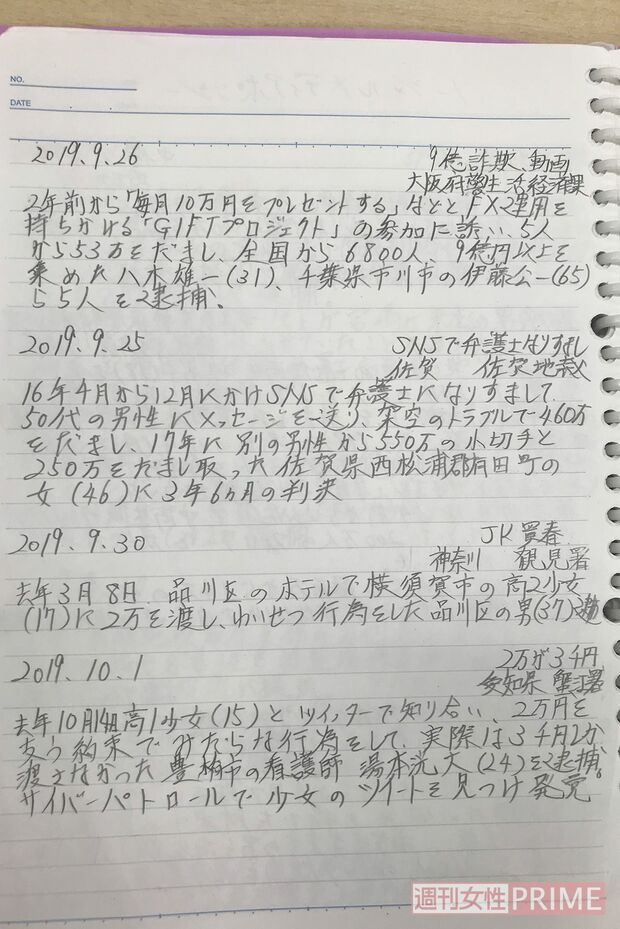 NO.
DATE
2019.9.26
9億詐欺、動画
大阪府警生活経済課
2年前から「毎月10万円をプレゼントする」などとFX運用を
持ちかける「GIFTプロジェクト」の参加に誘い、5人
から53万をだまし、全国から6800人、9億円以上を
集めた八木雄一(31)、千葉県市川市の伊藤公一(65)
ら5人を逮捕、
2019.9.25
SNSで弁護士なりすまし
佐賀 佐賀地裁
16年4月から12月にかけSNSで弁護士になりすまして
50代の男性にメッセージを送り、架空のトラブルで460万
をだまし、17年に別の男性から550万の小切手と
250万をだまし取った佐賀県西松浦郡有田町の
女(46)に3年6ヵ月の判決
2019.9.30
JK買春
神奈川 鶴見署
去年3月8日、品川区のホテルで横須賀市の高2少女
(17)に2万を渡し、わいせつ行為をした品川区の男(37)逮捕
2019.10.1
2万が3千円
愛知県 蟹江署
去年10月14日高1少女(15)とツイッターで知り合い、2万円を
払う約束でみだらな行為をして、実際は3千円しか
渡さなかった豊橋市の看護師 湯本洸大(24)を逮捕。
サイバーパトロールで少女のツイートを見つけ発覚
週刊女性PRIME